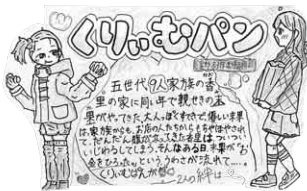 くりぃむパン
五世代9人家族の香
里の家に同い年で親せきの未
果がやってきた。大人っぽくてすてきで、優しい未果
は、家族からも、お店の人たちからもちやほやされ
て、だんだん腹が立ってきた香里は、つい
いじわるしてしまう。そんなある日、未果が"お
金をひろった"といううわさが流れて…。
くりぃむパンが
2人の絆は